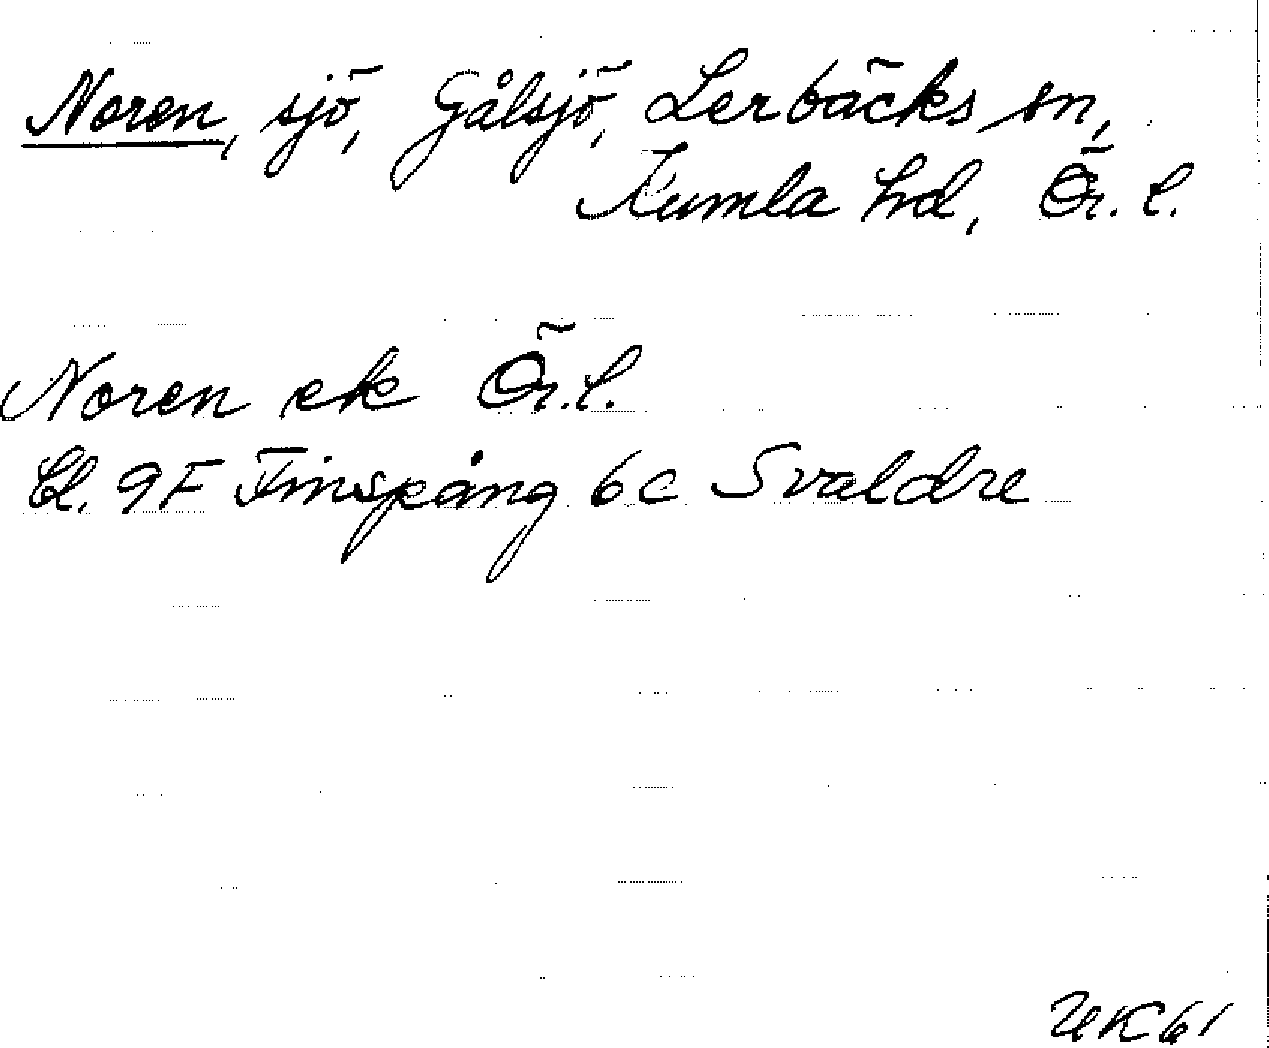 Noren, sjö, Gålsjö, Lerbäcks sn,
Kumla hd, Ör. l.
Noren ek Ör.l.
Bl. 9F Finspång 6c Svaldre
UK61